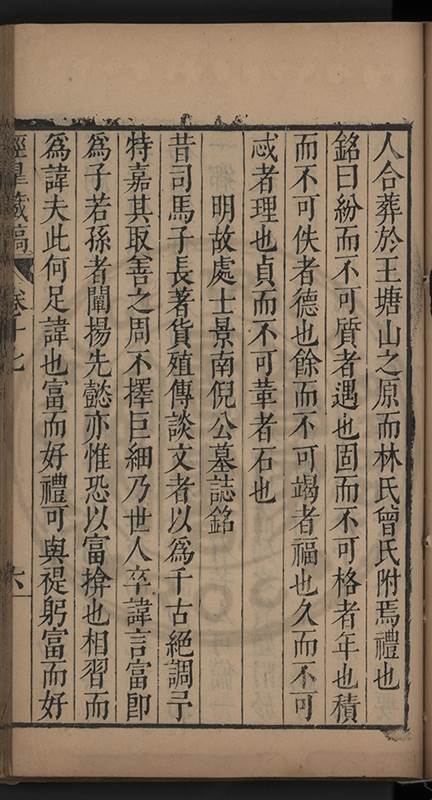 人合葬於王塘山之原而林氏曾氏附焉禮也
銘曰紛而不可質者遇也固而不可格者年也積
而不可佚者德也餘而不可竭者福也久而不可
忒者理也貞而不可葦者石也
明故處士景南倪公墓誌銘
昔司馬子長著貨殖傳談文者以為千古絕調予
特嘉其取善之周不擇巨細乃世人卒諱言富卽
為子若孫者闡揚先懿亦惟恐以富揜也相習而
為諱夫此何足諱也富而好禮可與禔躬富而好
卷十七
六